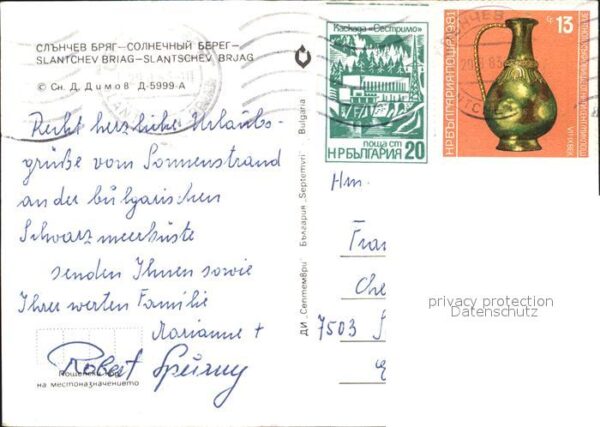 СЛЪНЧЕВ БРЯГ—СОЛНЕЧНЫЙ БЕРЕГ—
SLANTCHEV BRIAG—SLANTSCHEV BRJAG
© Сн. Д. Димов Д-5999-А
Recht herzliche Urlaubs-
grüße vom Sonnenstrand
an der bulgarischen
Schwarzmeerküste
senden Ihnen sowie
Ihrer werten Familie
Marianne +
Robert
на местоназначението
ДИ „Септември" България „Septemvri" Bulgaria
Каскада „Сестримо"
поща ст
НР БЪЛГАРИЯ 20
НР БЪЛГАРИЯ·ПОЩА·1981
13
VII-IX ВЕК
7503
privacy protection
Datenschutz